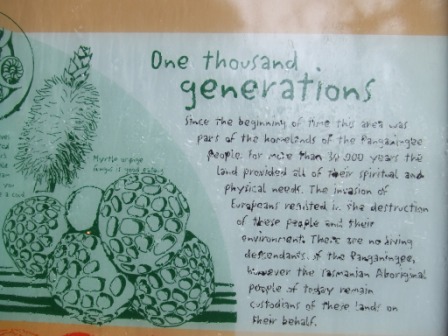 One thousand
generations
Since the beginning of time this area was
part of the homelands of the Panganingee
people. For more than 30 000 years the
land provided all of their spiritual and
physical needs. The invasion of
Europeans resulted in the destruction
of these people and their
environment. There are no living
descendants of the Panganingee,
however the Tasmanian Aboriginal
people of today remain
custodians of these lands on
their behalf.
Myrtle orange
fungi is good